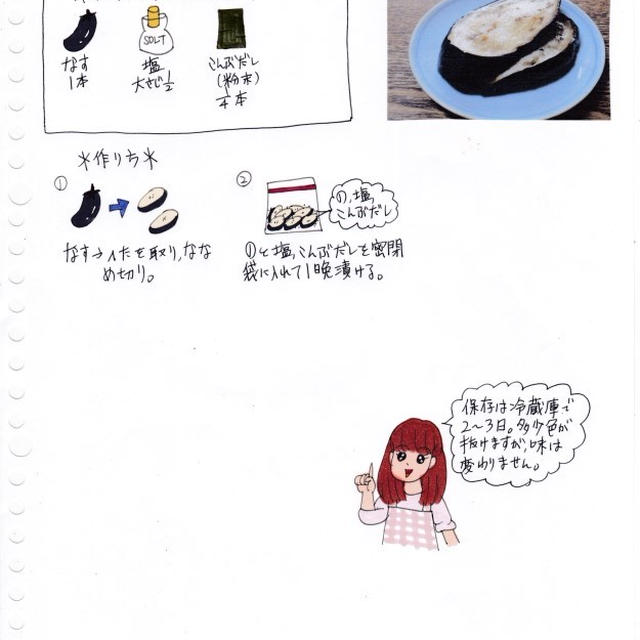 なす
1本
SOLT
塩
大さじ1/2
こんぶだし
(粉末)
1/4本
*作り方*
①
②
①,塩,
こんぶだし
なすはへたを取り,なな
め切り。
①と塩,こんぶだしを密閉
袋に入れて1晩漬ける。
保存は冷蔵庫で
2〜3日。多少色が
抜けますが,味は
変わりません。